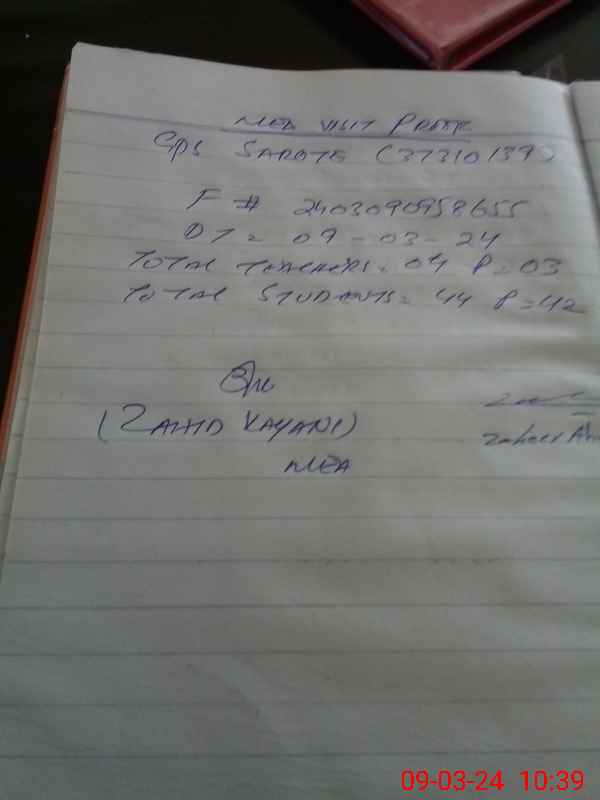 MEA VISIT PROOF
GPS SAROTE (37310139)
F # 2403090958655
DT = 09-03-24
TOTAL TEACHERS = 04 P = 03
TOTAL STUDENTS = 44 P = 42
(ZAHID KAYANI)
MEA
Zaheer
09-03-24 10:39